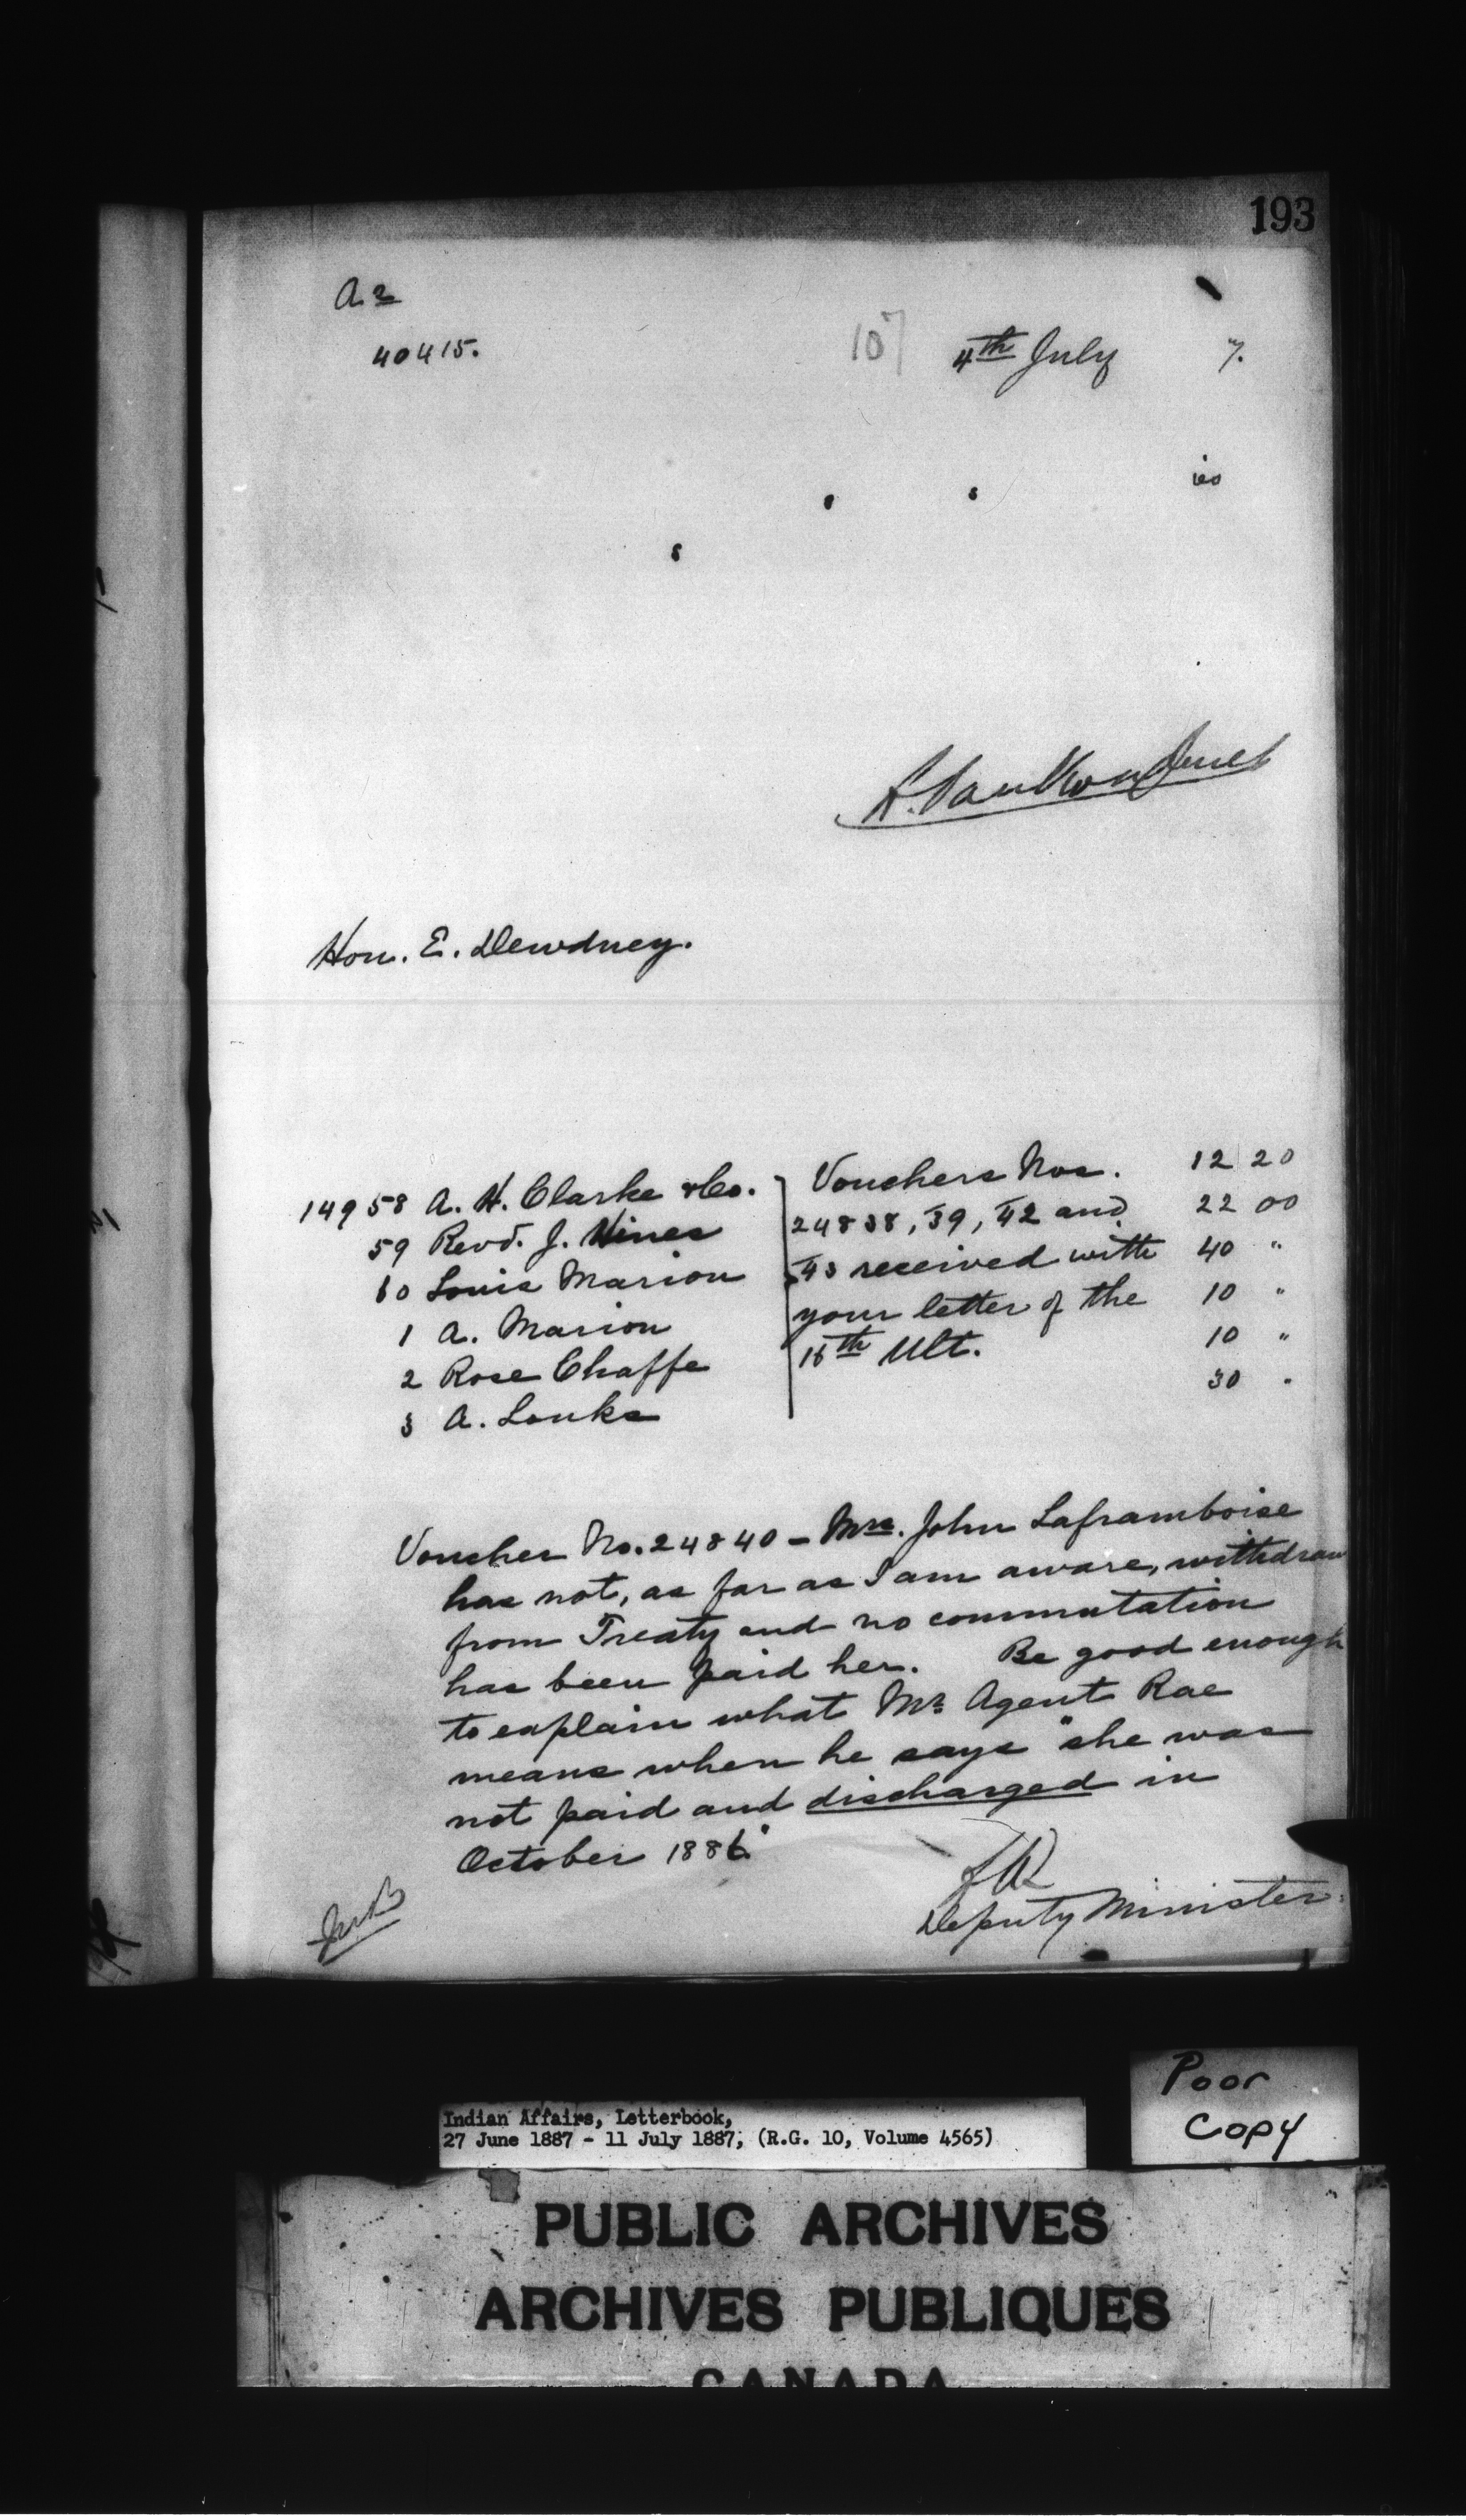 193
A.2
40415.
107
4th July 7.
ies
s
s
L. VanKoughnet
Hon. E. Dewdney.
14958 A. H. Clarke & Co. Vouchers Nos. 12 20
59 Revd. J. Hines 24838, 39, 42 and 22 00
60 Louis Marion 43 received with 40 "
1 A. Marion your letter of the 10 "
2 Rose Chaffe 16th Ult. 10 "
3 A. Louks 30 "
Voucher No. 24840 – Mrs. John Laframboise
has not, as far as I am aware, withdrawn
from Treaty and no commutation
has been paid her. Be good enough
to explain what Mr. Agent Rae
means when he says "she was
not paid and discharged in
October 1886."
Deputy Minister.
Poor
Copy
Indian Affairs, Letterbook,
27 June 1887 - 11 July 1887, (R.G. 10, Volume 4565)
PUBLIC ARCHIVES
ARCHIVES PUBLIQUES
CANADA